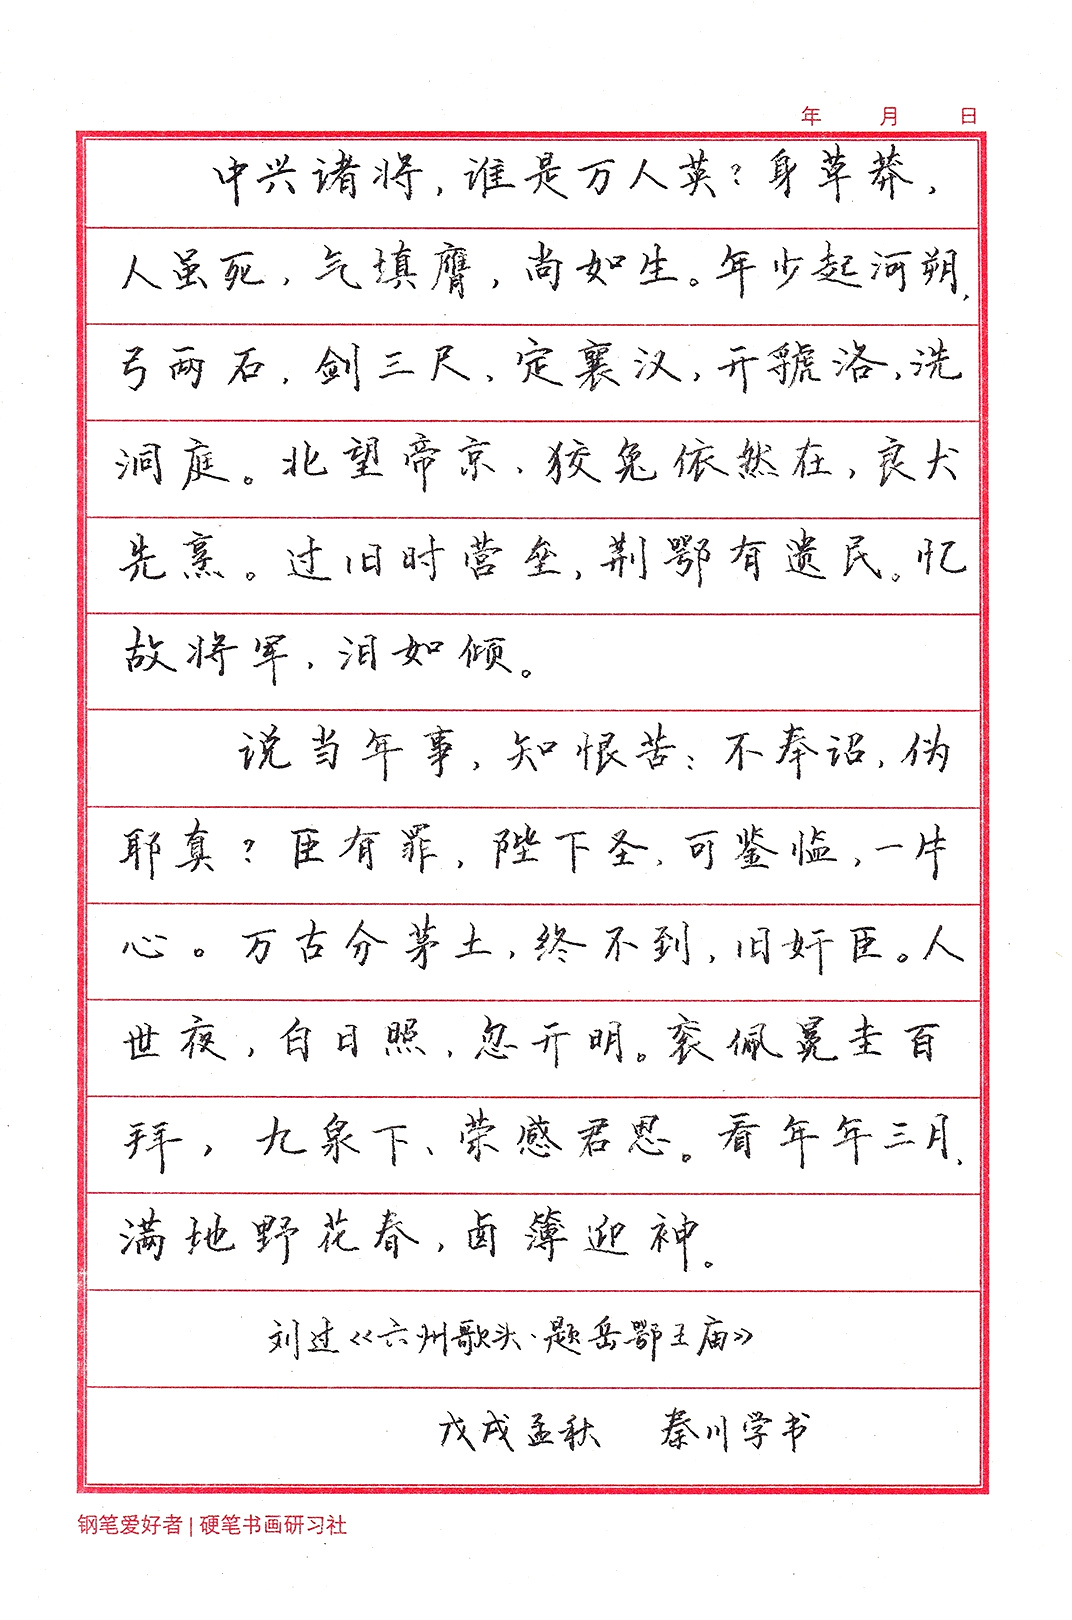 年 月 日
中兴诸将，谁是万人英？身草莽，
人虽死，气填膺，尚如生。年少起河朔，
弓两石，剑三尺，定襄汉，开虢洛，洗
洞庭。北望帝京，狡兔依然在，良犬
先烹。过旧时营垒，荆鄂有遗民。忆
故将军，泪如倾。
说当年事，知恨苦：不奉诏，伪
耶真？臣有罪，陛下圣，可鉴临，一片
心。万古分茅土，终不到，旧奸臣。人
世夜，白日照，忽开明。衮佩冕圭百
拜，九泉下、荣感君恩。看年年三月，
满地野花春，卤簿迎神。
刘过《六州歌头·题岳鄂王庙》
戊戌孟秋 秦川学书
钢笔爱好者|硬笔书画研习社